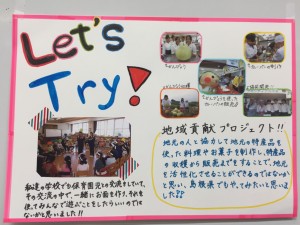 Let's
Try!
地域貢献プロジェクト!!
地元の人と協力して地元の特産品を
使った料理やお菓子を制作し、特産品
の収穫から販売までをすることで、地元
を活性化させることができるのではないかと
思い、島根県でもやってみたいと思いまし
た!!
私達の学校でも保育園児との交流をしていて、
その交流の中で、一緒にお面を作り、それを
使ってみんなで遊ぶことをしたらいいのでは
ないかと思いました!!